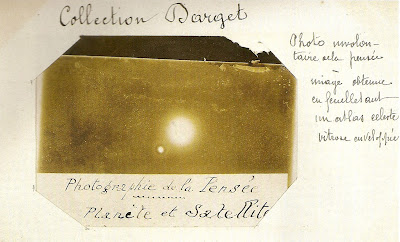 Collection Darget
Photo involon-
taire de la pensée
image obtenue
en feuilletant
un atlas céleste
vitrose enveloppée
Photographie de la Pensée
Planète et Satellite